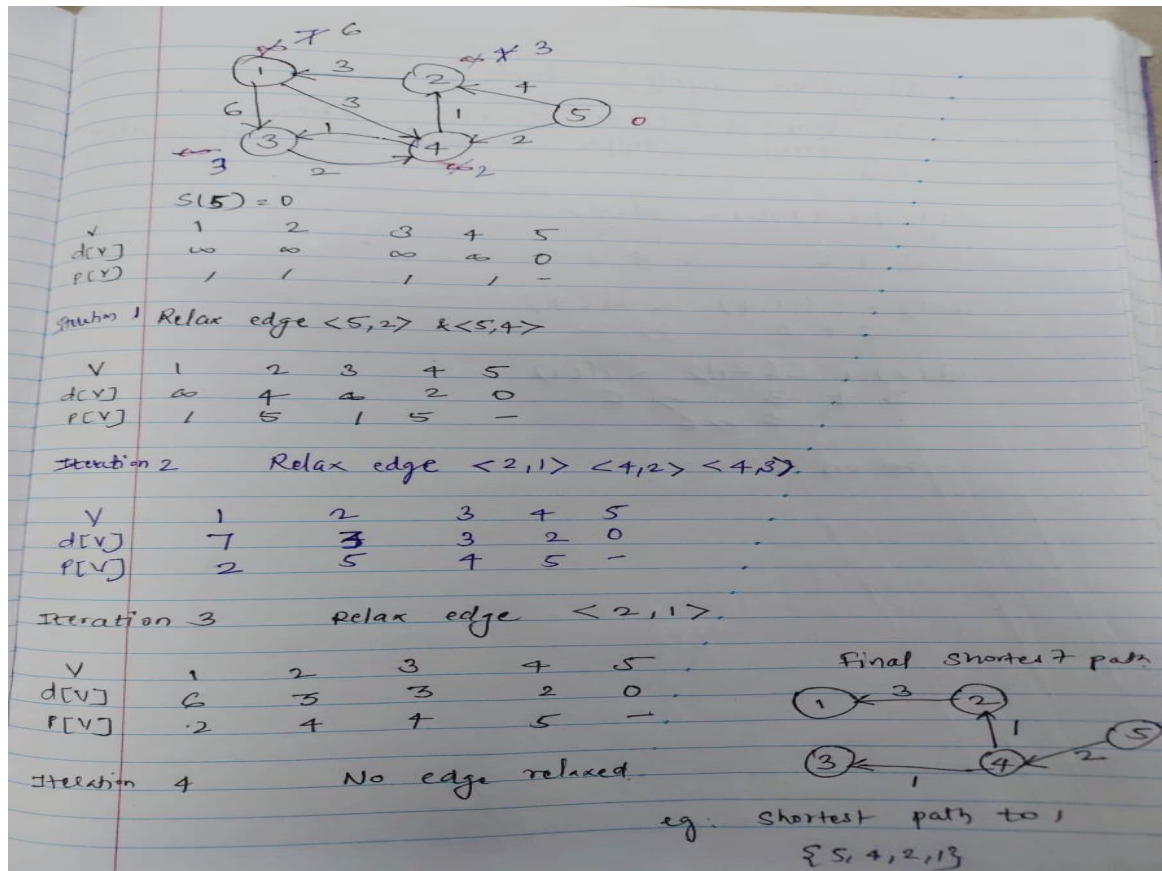 ∞ 7 6
∞ 4 3
1 3 2 4
6 3 1 5 0
3 1 4 2
∞ 3 2 ∞ 2
S(5) = 0
V 1 2 3 4 5
d[V] ∞ ∞ ∞ ∞ 0
P[V] / / / / -
Iteration 1 Relax edge <5,2> & <5,4>
V 1 2 3 4 5
d[V] ∞ 4 ∞ 2 0
P[V] / 5 / 5 -
Iteration 2 Relax edge <2,1> <4,2> <4,3>.
V 1 2 3 4 5
d[V] 7 3 3 2 0
P[V] 2 5 4 5 -
Iteration 3 Relax edge <2,1>.
V 1 2 3 4 5
d[V] 6 3 3 2 0
P[V] 2 4 4 5 -
Iteration 4 No edge relaxed
Final shortest path
1 3 2
1 5
3 4 2
1
eg. Shortest path to 1
{5, 4, 2, 1}